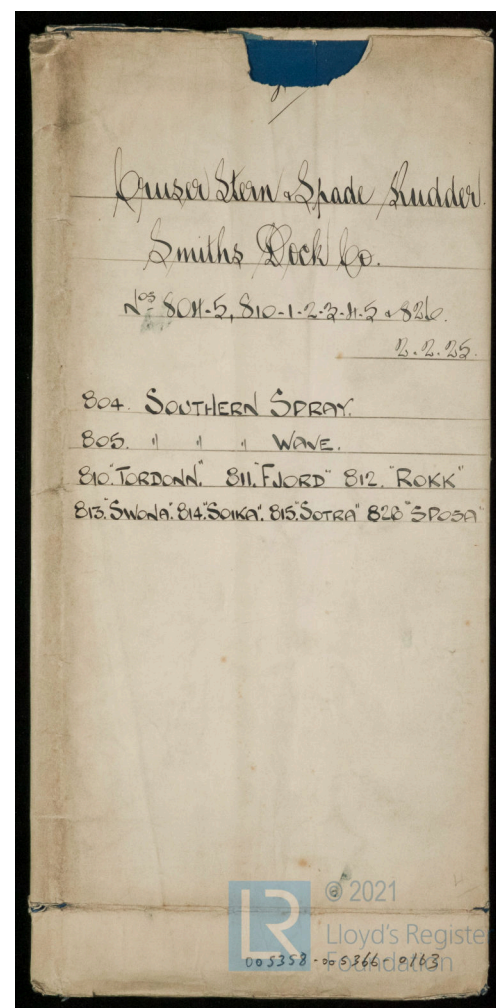 Cruiser Stern & Spade Rudder.
Smiths Dock Co.
Nos 804-5, 810-1-2-3-4-5 & 826.
2.2.25.
804. SOUTHERN SPRAY.
805. " " " WAVE.
810 "TORDONN." 811. "FJORD" 812. "ROKK"
813. "SWONA". 814. "SOIKA". 815. "SOTRA" 826 "SPOSA"
© 2021
LR
Lloyd's Register
Foundation
005358-005366-0163